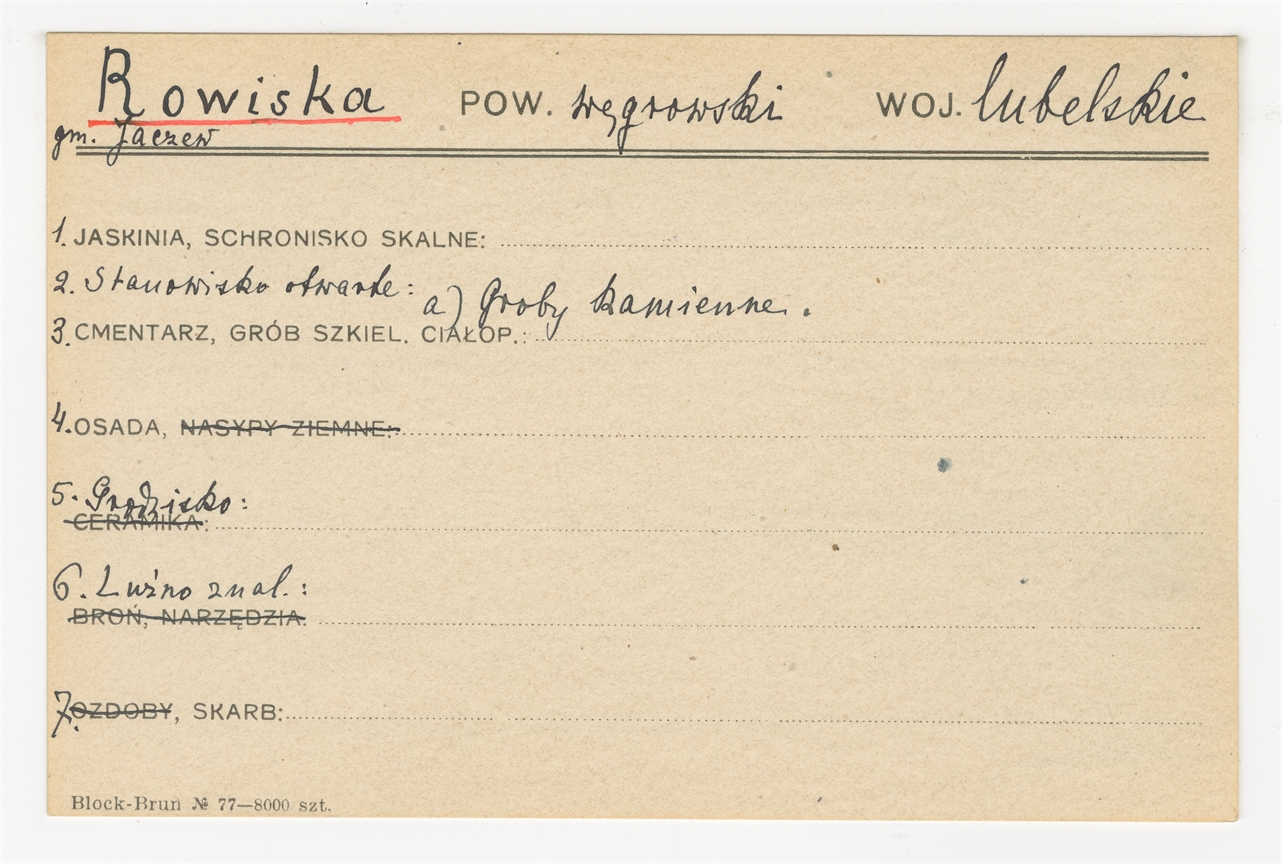 Rowiska POW. węgrowski WOJ. lubelskie
gm. Jaczew
1. JASKINIA, SCHRONISKO SKALNE:
2. Stanowisko otwarte: a) Groby kamienne.
3. CMENTARZ, GRÓB SZKIEL. CIAŁOP.:
4. OSADA, NASYPY ZIEMNE:
5. Grodzisko:
CERAMIKA:
6. Luźno znal.:
BROŃ, NARZĘDZIA:
7. OZDOBY, SKARB:
Block-Brun № 77—8000 szt.